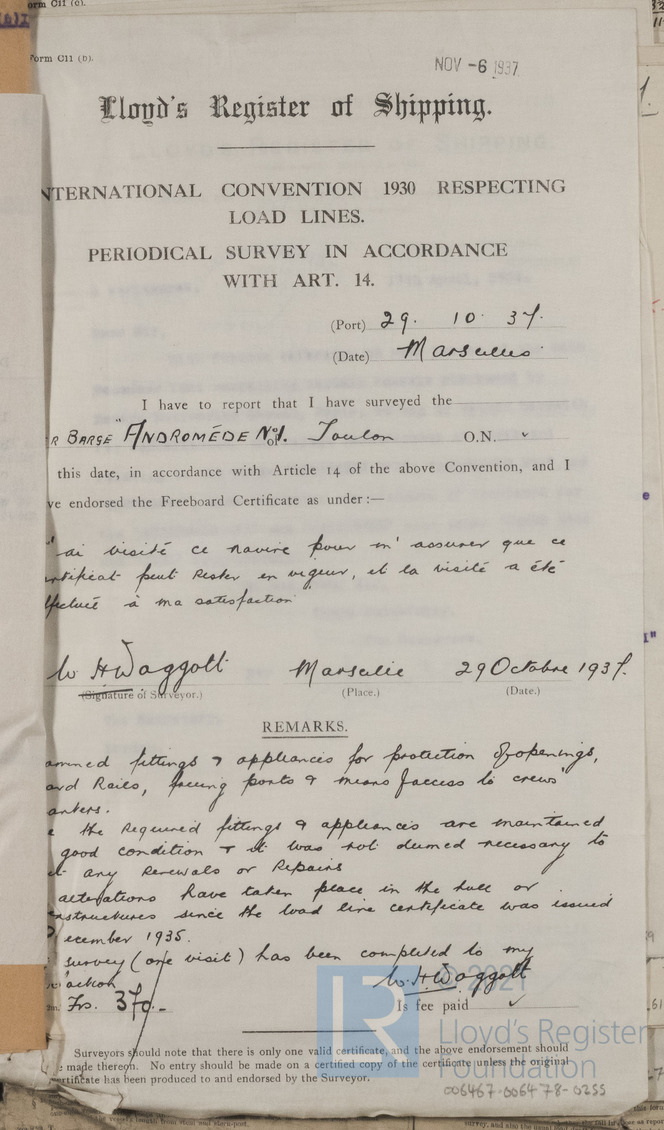 orm C11 (c).
Form C11 (b).
NOV -6 1937
Lloyd's Register of Shipping.
NTERNATIONAL CONVENTION 1930 RESPECTING
LOAD LINES.
PERIODICAL SURVEY IN ACCORDANCE
WITH ART. 14.
(Port) 29. 10. 37.
(Date) Marseilles
I have to report that I have surveyed the
R BARGE "ANDROMÈDE No 1. of Toulon O.N. ✓
this date, in accordance with Article 14 of the above Convention, and I
ve endorsed the Freeboard Certificate as under :—
'ai visité ce navire pour m'assurer que ce
rtificat peut rester en vigueur, et la visite a été
ffectué à ma satisfaction
W H Waggott Marseille 29 Octobre 1937.
(Signature of Surveyor.) (Place.) (Date.)
REMARKS.
ammed fittings & appliances for protection of openings,
ard Rails, freeing ports & means of access to crews'
arters.
the Required fittings & appliances are maintained
good condition & it was not deemed necessary to
any Renewals or Repairs
alterations have taken place in the hull or
erstructures since the load line certificate was issued
December 1935.
survey (one visit) has been completed to my
action
W. H. Waggott
Frs. 370.-
Is fee paid ✓
Surveyors should note that there is only one valid certificate, and the above endorsement should
e made thereon. No entry should be made on a certified copy of the certificate unless the original
ertificate has been produced to and endorsed by the Surveyor.
© 2021
Lloyd's Register
Foundation
006467-006478-0255